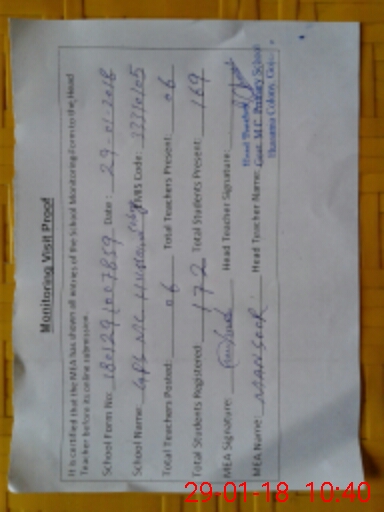 Monitoring Visit Proof
It is certified that the MEA has shown all entries of the School Monitoring Form to the Head
Teacher before its online submission.
School Form No: Date: 29-01-2018
School Name: EMIS Code:
Total Teachers Posted: 06 Total Teachers Present: 06
Total Students Registered: 172 Total Students Present: 169
MEA Signature: Head Teacher Signature:
MEA Name: MANSOOR Head Teacher Name:
Head Teacher
Govt. M.C. Primary School
29-01-18 10:40